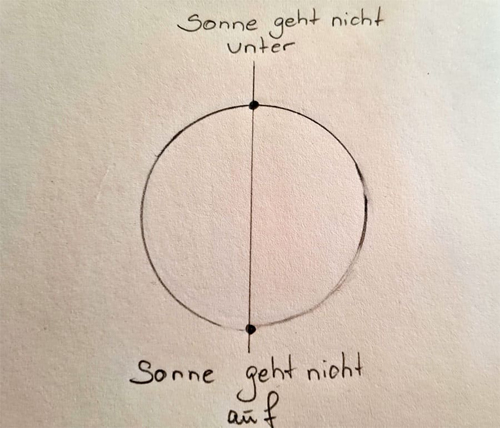 Sonne geht nicht
unter
Sonne geht nicht
auf